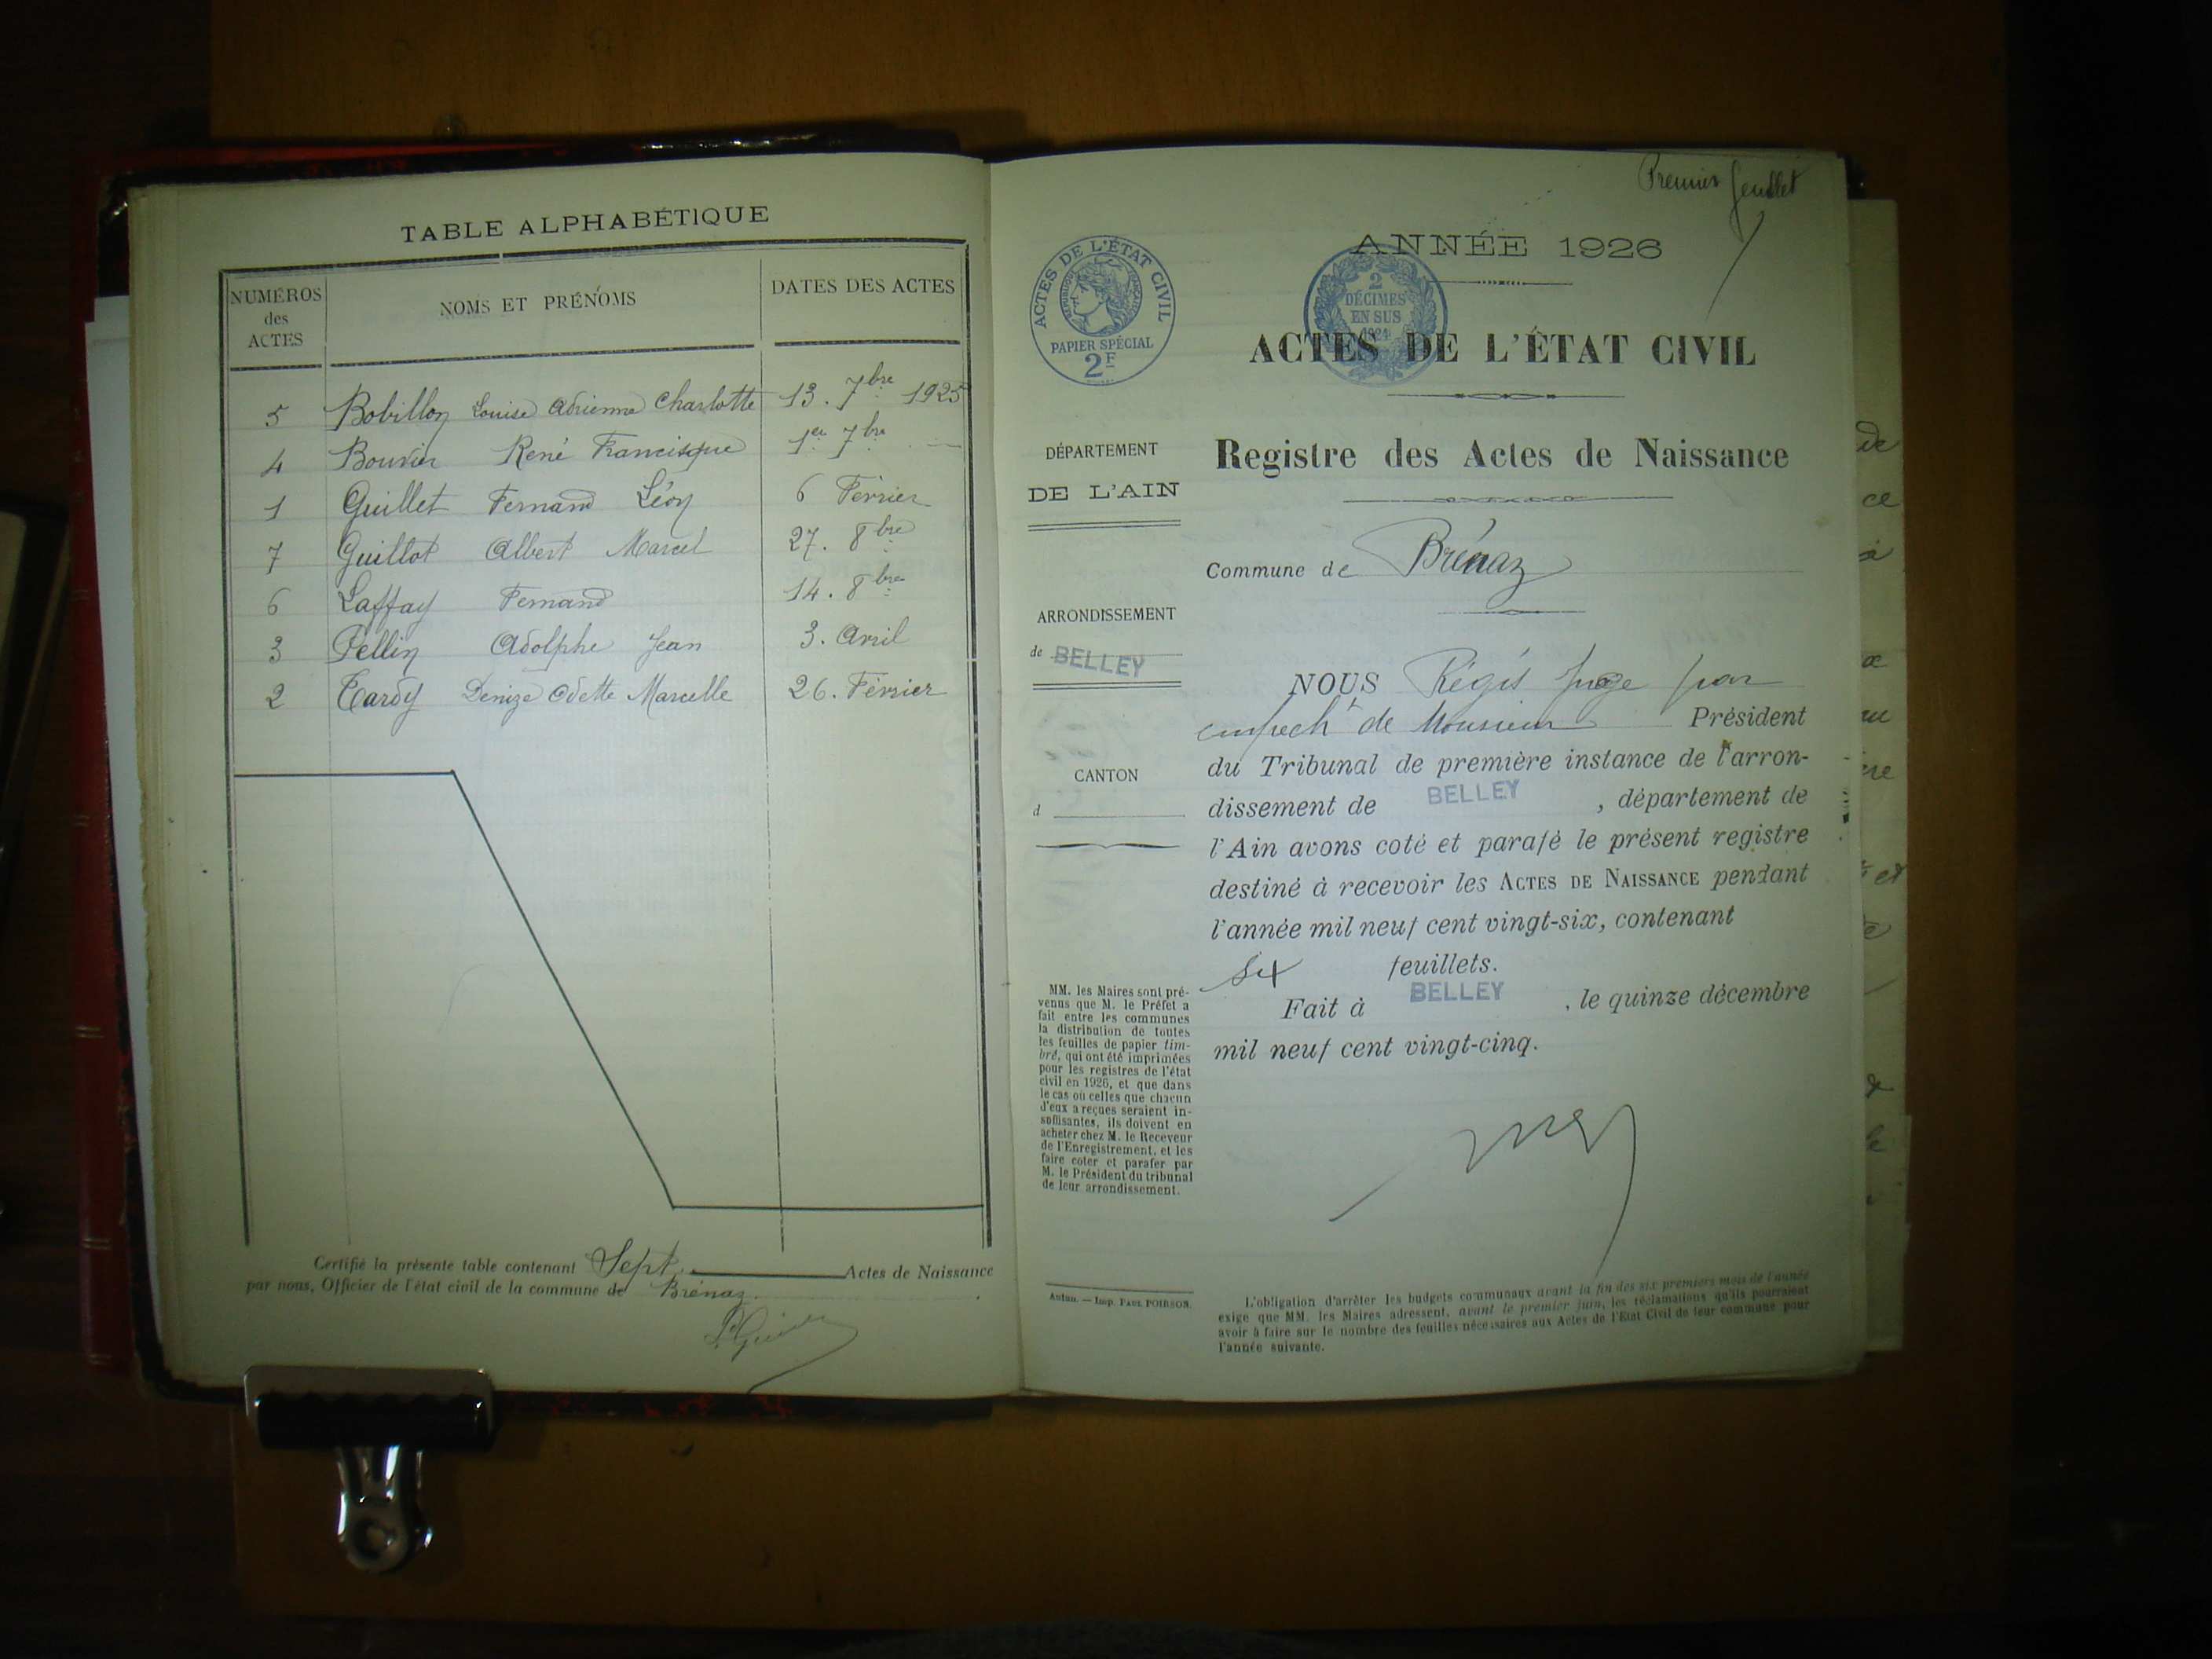 TABLE ALPHABÉTIQUE
NUMÉROS
des
ACTES
NOMS ET PRÉNOMS
DATES DES ACTES
5 Bobillon Louise Adrienne Charlotte 13. 7bre 1925
4 Bouvier René Francisque 1er 7bre —
1 Guillet Fernand Léon 6 Février
7 Guillot Albert Marcel 27. 8bre
6 Laffay Fernand 14. 8bre
3 Pellin Adolphe Jean 3. Avril
2 Tardy Denize Odette Marcelle 26. Février
Certifié la présente table contenant Sept Actes de Naissance
par nous, Officier de l'état civil de la commune de Brénaz.
Premier feuillet
ANNÉE 1926
ACTES DE L'ÉTAT CIVIL
PAPIER SPÉCIAL
2F
2
DÉCIMES
EN SUS
1924
ACTES DE L'ÉTAT CIVIL
Registre des Actes de Naissance
DÉPARTEMENT
DE L'AIN
ARRONDISSEMENT
de BELLEY
CANTON
d
Commune de Brénaz
NOUS Régis Juge par
empecht de Monsieur Président
du Tribunal de première instance de l'arron-
dissement de BELLEY, département de
l'Ain avons coté et parafé le présent registre
destiné à recevoir les ACTES DE NAISSANCE pendant
l'année mil neuf cent vingt-six, contenant
six feuillets.
Fait à BELLEY, le quinze décembre
mil neuf cent vingt-cinq.
MM. les Maires sont pré-
venus que M. le Préfet a
fait entre les communes
la distribution de toutes
les feuilles de papier tim-
bré, qui ont été imprimées
pour les registres de l'état
civil en 1926, et que dans
le cas où celles que chacun
d'eux a reçues seraient in-
suffisantes, ils doivent en
acheter chez M. le Receveur
de l'Enregistrement, et les
faire coter et parafer par
M. le Président du tribunal
de leur arrondissement.
Autun. — Imp. PAUL POIRSON.
L'obligation d'arrêter les budgets communaux avant la fin des six premiers mois de l'année
exige que MM. les Maires adressent, avant le premier juin, les réclamations qu'ils pourraient
avoir à faire sur le nombre des feuilles nécessaires aux Actes de l'Etat Civil de leur commune pour
l'année suivante.